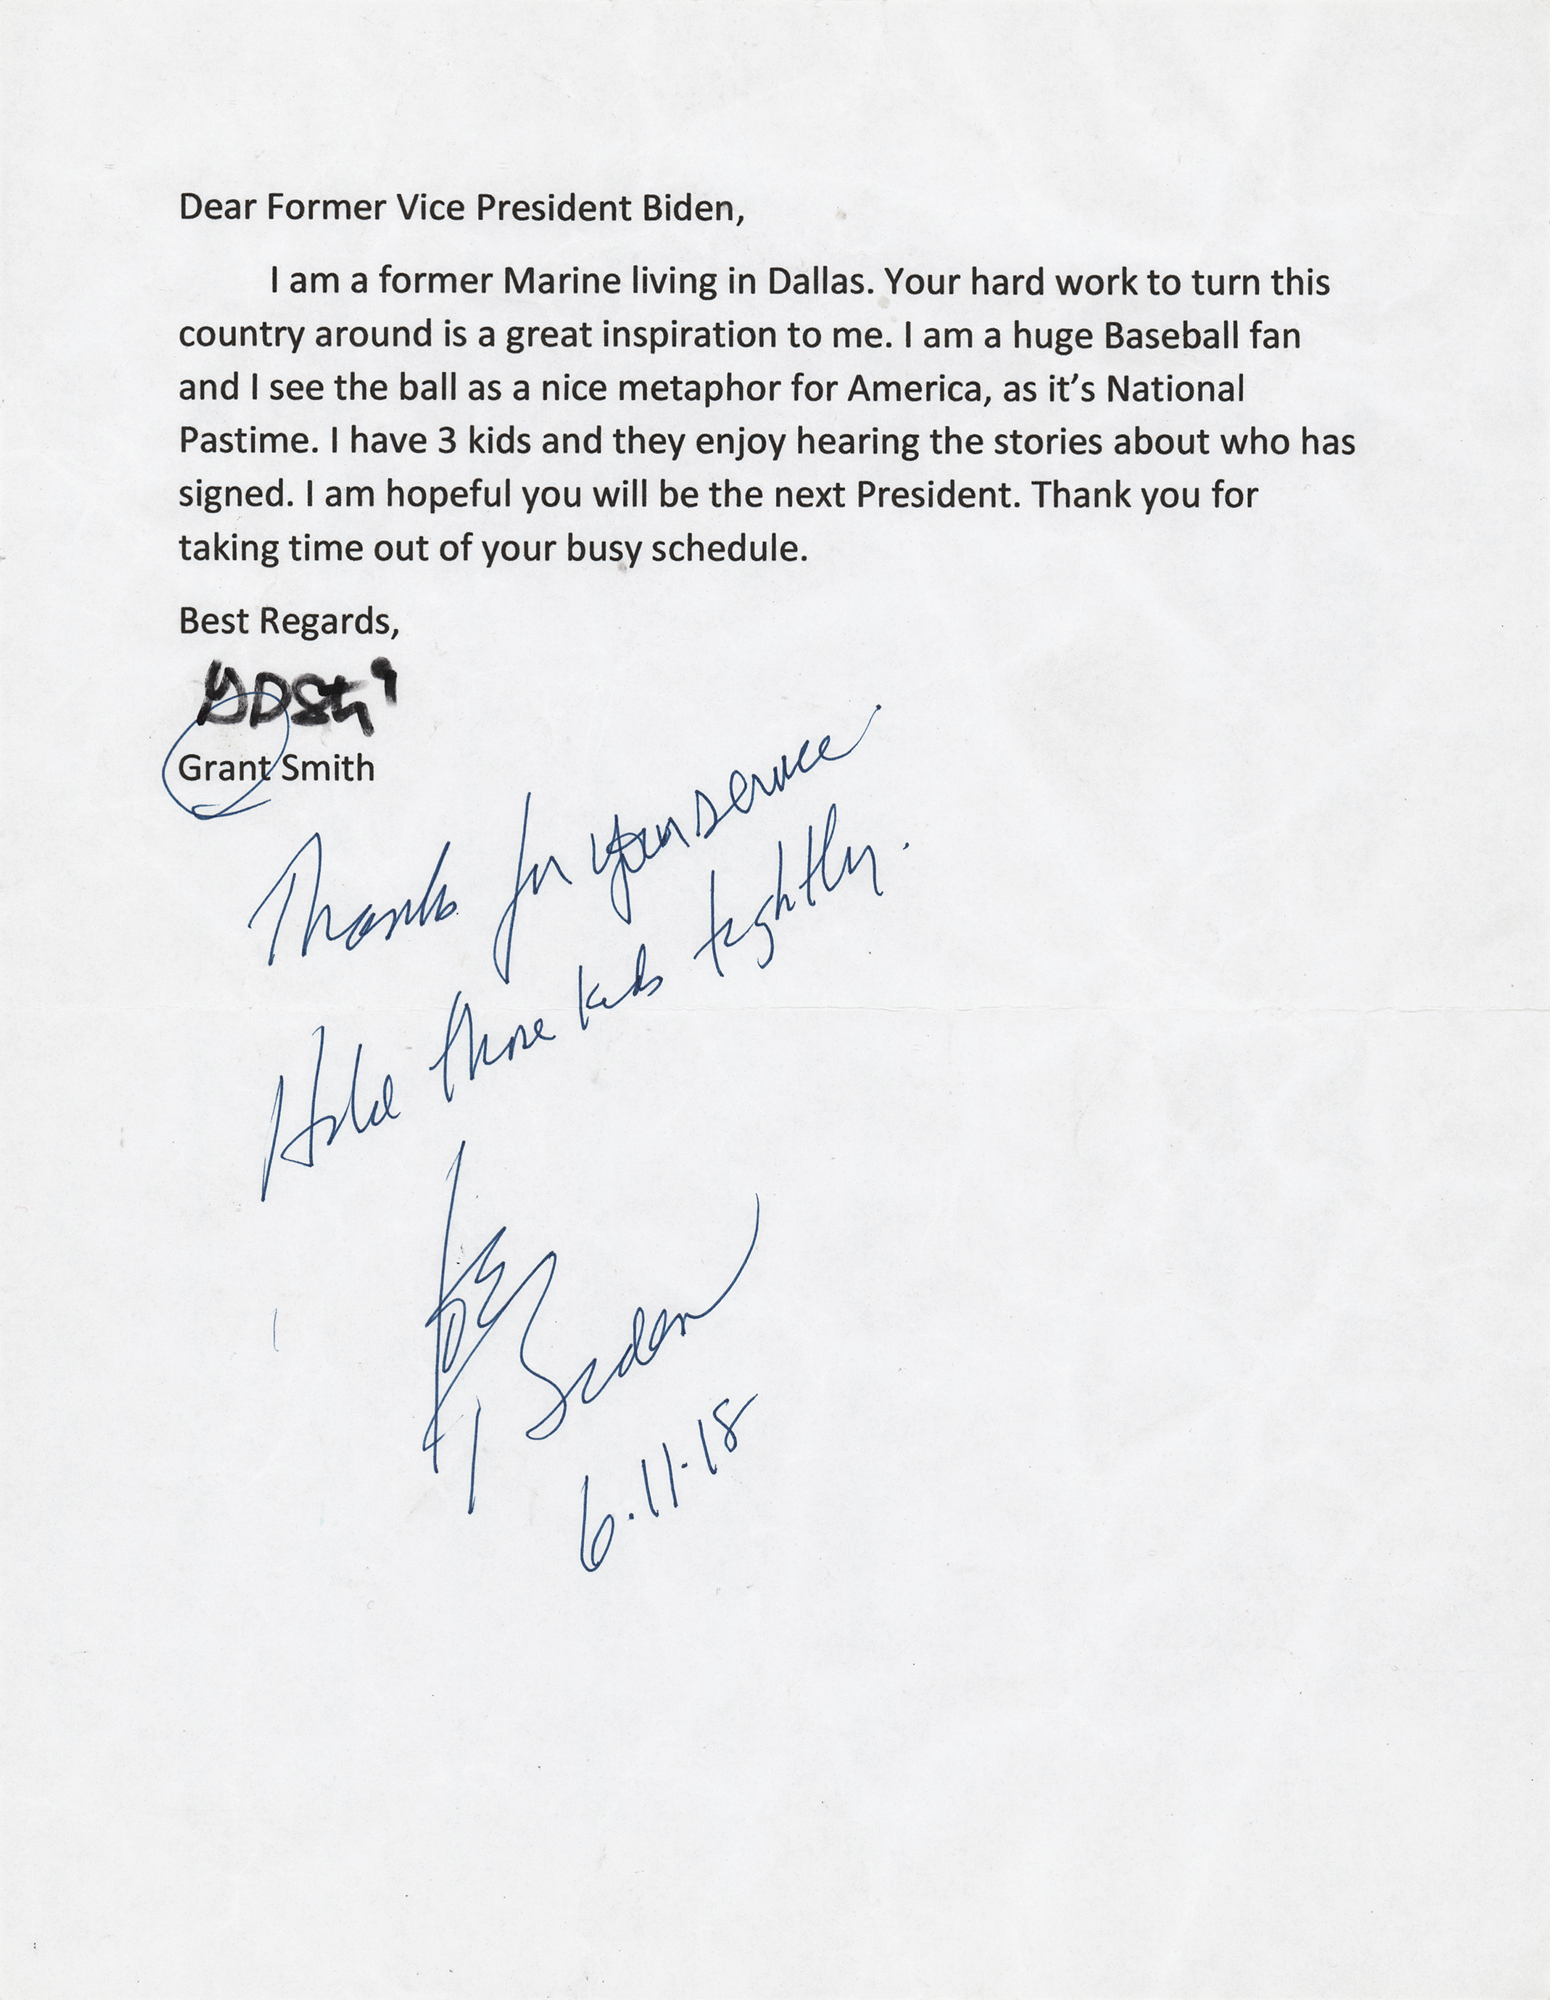 Dear Former Vice President Biden,
I am a former Marine living in Dallas. Your hard work to turn this
country around is a great inspiration to me. I am a huge Baseball fan
and I see the ball as a nice metaphor for America, as it’s National
Pastime. I have 3 kids and they enjoy hearing the stories about who has
signed. I am hopeful you will be the next President. Thank you for
taking time out of your busy schedule.
Best Regards,
Grant Smith
Thanks for your service
Hold those kids tightly.
Joe Biden
6.11.18